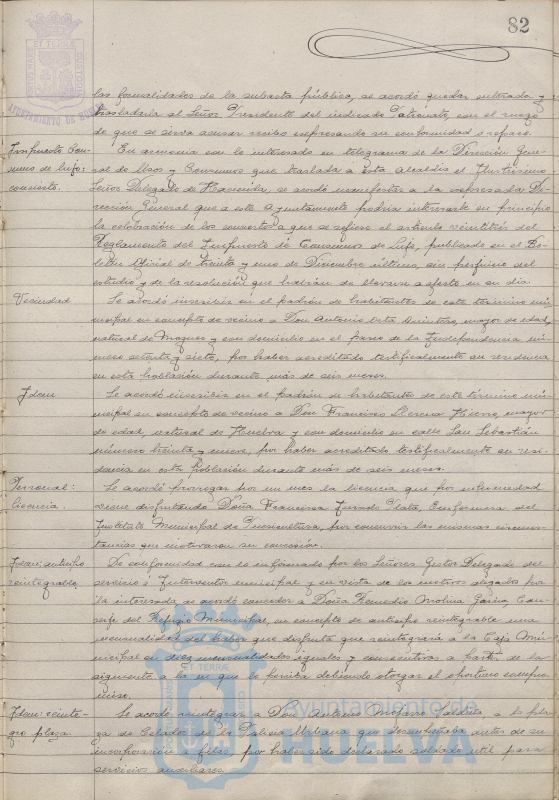 82
AYUNTAMIENTO DE HUELVA
las formalidades de la subasta pública, se acordó quedar enterada y
trasladarla al Señor Presidente del indicado Patronato, con el ruego
de que se sirva acusar recibo expresando su conformidad o reparo.
Impuesto Con- En armonía con lo interesado en telegrama de la Dirección Gene-
sumos de lujo: ral de Usos y Consumos que traslada a esta Alcaldía el Ilustrísimo
concierto. Señor Delegado de Hacienda, se acordó manifestar a la expresada Di-
rección General que a este Ayuntamiento podría interesarle en principio
la celebración de los conciertos a que se refiere el artículo veintitrés del
Reglamento del Impuesto de Consumos de Lujo, publicado en el Bo-
letín Oficial de treinta y uno de Diciembre último, sin perjuicio del
estudio y de la resolución que habrán de llevarse a efecto en su día.
Vecindad Se acordó inscribir en el padrón de habitantes de este término mu-
nicipal en concepto de vecino a Don Antonio Quintero, mayor de edad,
natural de Moguer y con domicilio en el paseo de la Independencia nú-
mero setenta y siete, por haber acreditado testificalmente su residencia
en esta población durante más de seis meses.
Idem Se acordó inscribir en el padrón de habitantes de este término mu-
nicipal en concepto de vecino a Don Francisco Llerena Hierro, mayor
de edad, natural de Huelva y con domicilio en calle San Sebastián
número treinta y nueve, por haber acreditado testificalmente su resi-
dencia en esta población durante más de seis meses.
Personal: Se acordó prorrogar por un mes la licencia que por enfermedad
licencia. viene disfrutando Doña Francisca Jurado Plata, Enfermera del
Instituto Municipal de Puericultura, por concurrir las mismas circuns-
tancias que motivaron su concesión.
Idem: anticipo De conformidad con lo informado por los Señores Gestor Delegado del
reintegrable. servicio e Interventor municipal y en vista de los motivos alegados por
la interesada se acordó conceder a Doña Remedio Molina García
del Refugio Municipal, en concepto de anticipo reintegrable una
mensualidad del haber que disfruta que reintegrará a la Caja Mu-
nicipal en diez mensualidades iguales y consecutivas a partir de la
siguiente a la en que la perciba debiendo otorgar el oportuno compro-
miso.
Idem: reinte- Se acordó reintegrar a Don Antonio Saldaña a la pla-
gro plaza za de Celador de la Policía Urbana que desempeñaba antes de su
incorporación a filas por haber sido declarado soldado útil para
servicios auxiliares.
Ayuntamiento de
HUELVA